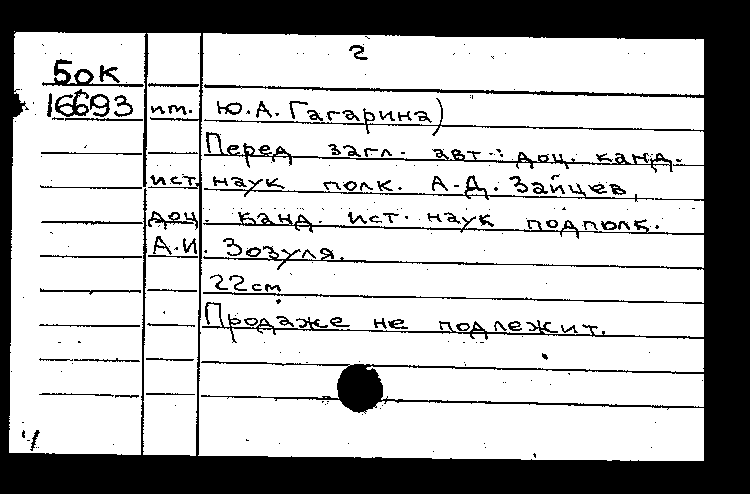 2
БоК
16693 им. Ю.А. Гагарина)
Перед загл. авт.: доц. канд.
ист. наук полк. А.Д. Зайцев,
доц. канд. ист. наук подполк.
А.И. Зозуля.
22 см
Продаже не подлежит.